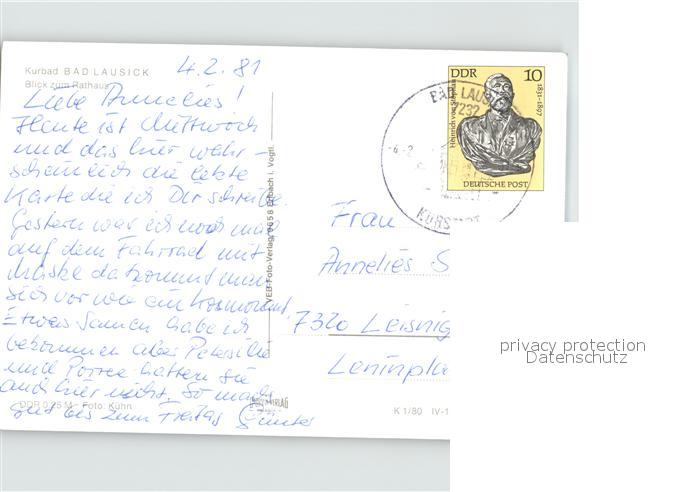 Kurbad BAD LAUSICK
Blick zum Rathaus
4.2.81
Liebe Annelies!
Heute ist Mittwoch
und das hier wahr-
scheinlich die letzte
Karte die ich Dir schreibe.
Gestern war ich noch mal
auf dem Fahrrad mit
Maske da kommt man
sich vor wie ein Kosmonaut.
Etwas Samen habe ich
bekommen aber Petersilie
und Porree hatten sie
auch hier nicht. So machs
gut bis zum Freitag Günter
DDR 0,25 M Foto: Kühn
VEB Foto-Verlag Erlbach i. Vogtl.
K 1/80 IV-1
DDR 10
Heinrich von Stephan
1831-1897
DEUTSCHE POST
BAD LAUS
7232
KURSTADT
Frau
Annelies S
7320 Leisnig
Leninpla
privacy protection
Datenschutz